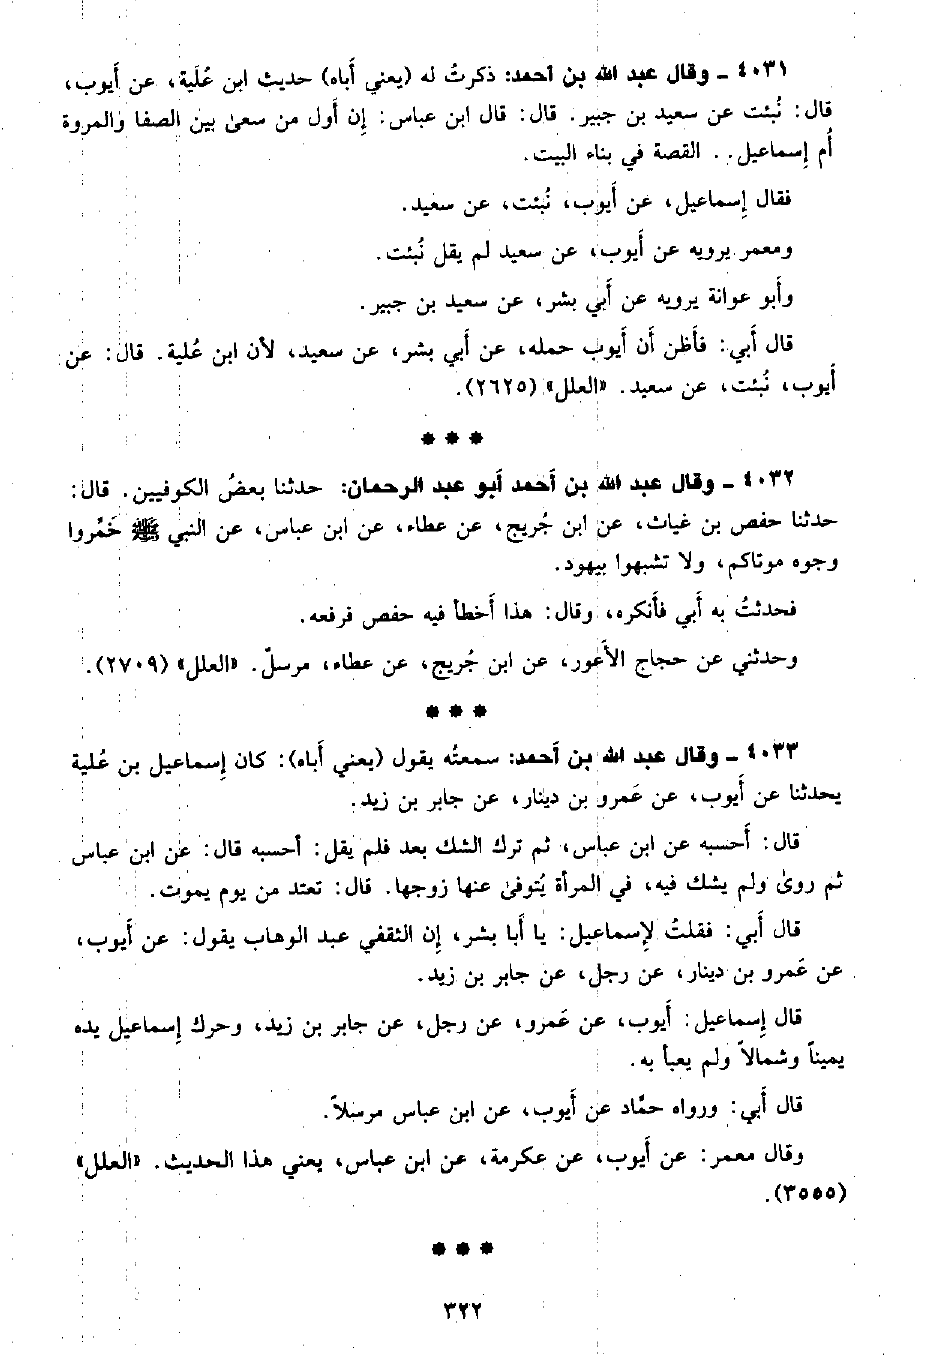 ٤٠٣١ ـ وقال عبد الله بن أحمد: ذكرتُ له (يعني أَباه) حديث ابن عُلَية، عن أَيوب،
قال: نُبئت عن سعيد بن جبير. قال: قال ابن عباس: إِن أَول من سعىٰ بين الصفا والمروة
أُم إِسماعيل.. القصة في بناء البيت.
فقال إِسماعيل، عن أَيوب، نُبئت، عن سعيد.
ومعمر يرويه عن أَيوب، عن سعيد لم يقل نُبئت.
وأَبو عوانة يرويه عن أَبي بشر، عن سعيد بن جبير.
قال أَبي: فأَظن أَن أَيوب حمله، عن أَبي بشر، عن سعيد، لأن ابن عُلية. قال: عن
أَيوب، نُبئت، عن سعيد. «العلل» (٢٦٢٥).
* * *
٤٠٣٢ ـ وقال عبد الله بن أَحمد أَبو عبد الرحمان: حدثنا بعضُ الكوفيين. قال:
حدثنا حفص بن غياث، عن ابن جُريج، عن عطاء، عن ابن عباس، عن النبي ﷺ خَمِّروا
وجوه موتاكم، ولا تشبهوا بيهود.
فحدثتُ به أَبي فأَنكره، وقال: هذا أَخطأ فيه حفص فرفعه.
وحدثني عن حجاج الأَعور، عن ابن جُريج، عن عطاء، مرسلٌ. «العلل» (٢٧٠٩).
* * *
٤٠٣٣ ـ وقال عبد الله بن أَحمد: سمعتُه يقول (يعني أَباه): كان إِسماعيل بن عُلية
يحدثنا عن أَيوب، عن عَمرو بن دينار، عن جابر بن زيد.
قال: أَحسبه عن ابن عباس، ثم ترك الشك بعد فلم يقل: أحسبه قال: عن ابن عباس
ثم روىٰ ولم يشك فيه، في المرأة يُتوفىٰ عنها زوجها. قال: تعتد من يوم يموت.
قال أَبي: فقلتُ لإِسماعيل: يا أَبا بشر، إِن الثقفي عبد الوهاب يقول: عن أَيوب،
عن عَمرو بن دينار، عن رجل، عن جابر بن زيد.
قال إِسماعيل: أَيوب، عن عَمرو، عن رجل، عن جابر بن زيد، وحرك إِسماعيل يده
يميناً وشمالاً ولم يعبأ به.
قال أَبي: ورواه حمَّاد عن أَيوب، عن ابن عباس مرسلاً.
وقال معمر: عن أَيوب، عن عكرمة، عن ابن عباس، يعني هذا الحديث. «العلل»
(٣٥٥٥).
* * *
٣٢٢